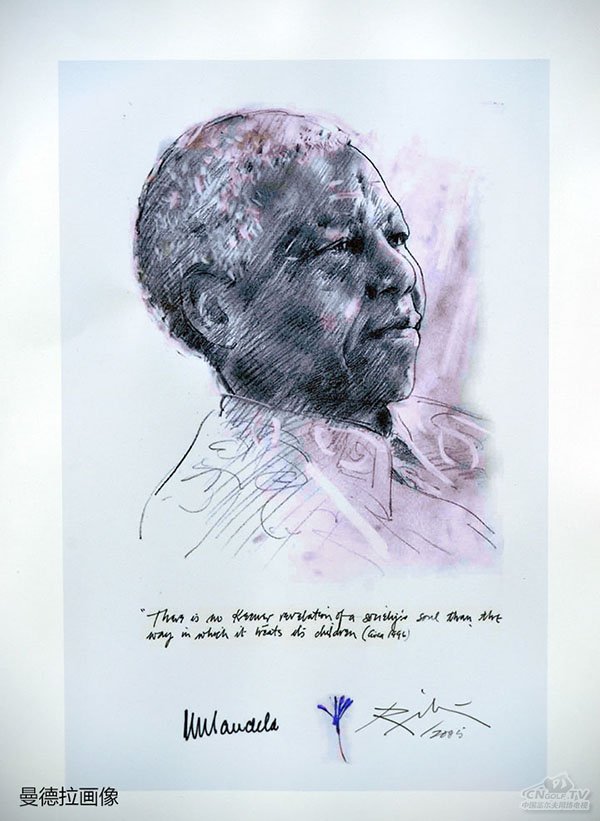 "There is no keener revelation of a society's soul than the
way in which it treats its children (Circa
NMandela
/2005
曼德拉画像
CNGOLF.TV
中国高尔夫网络电视